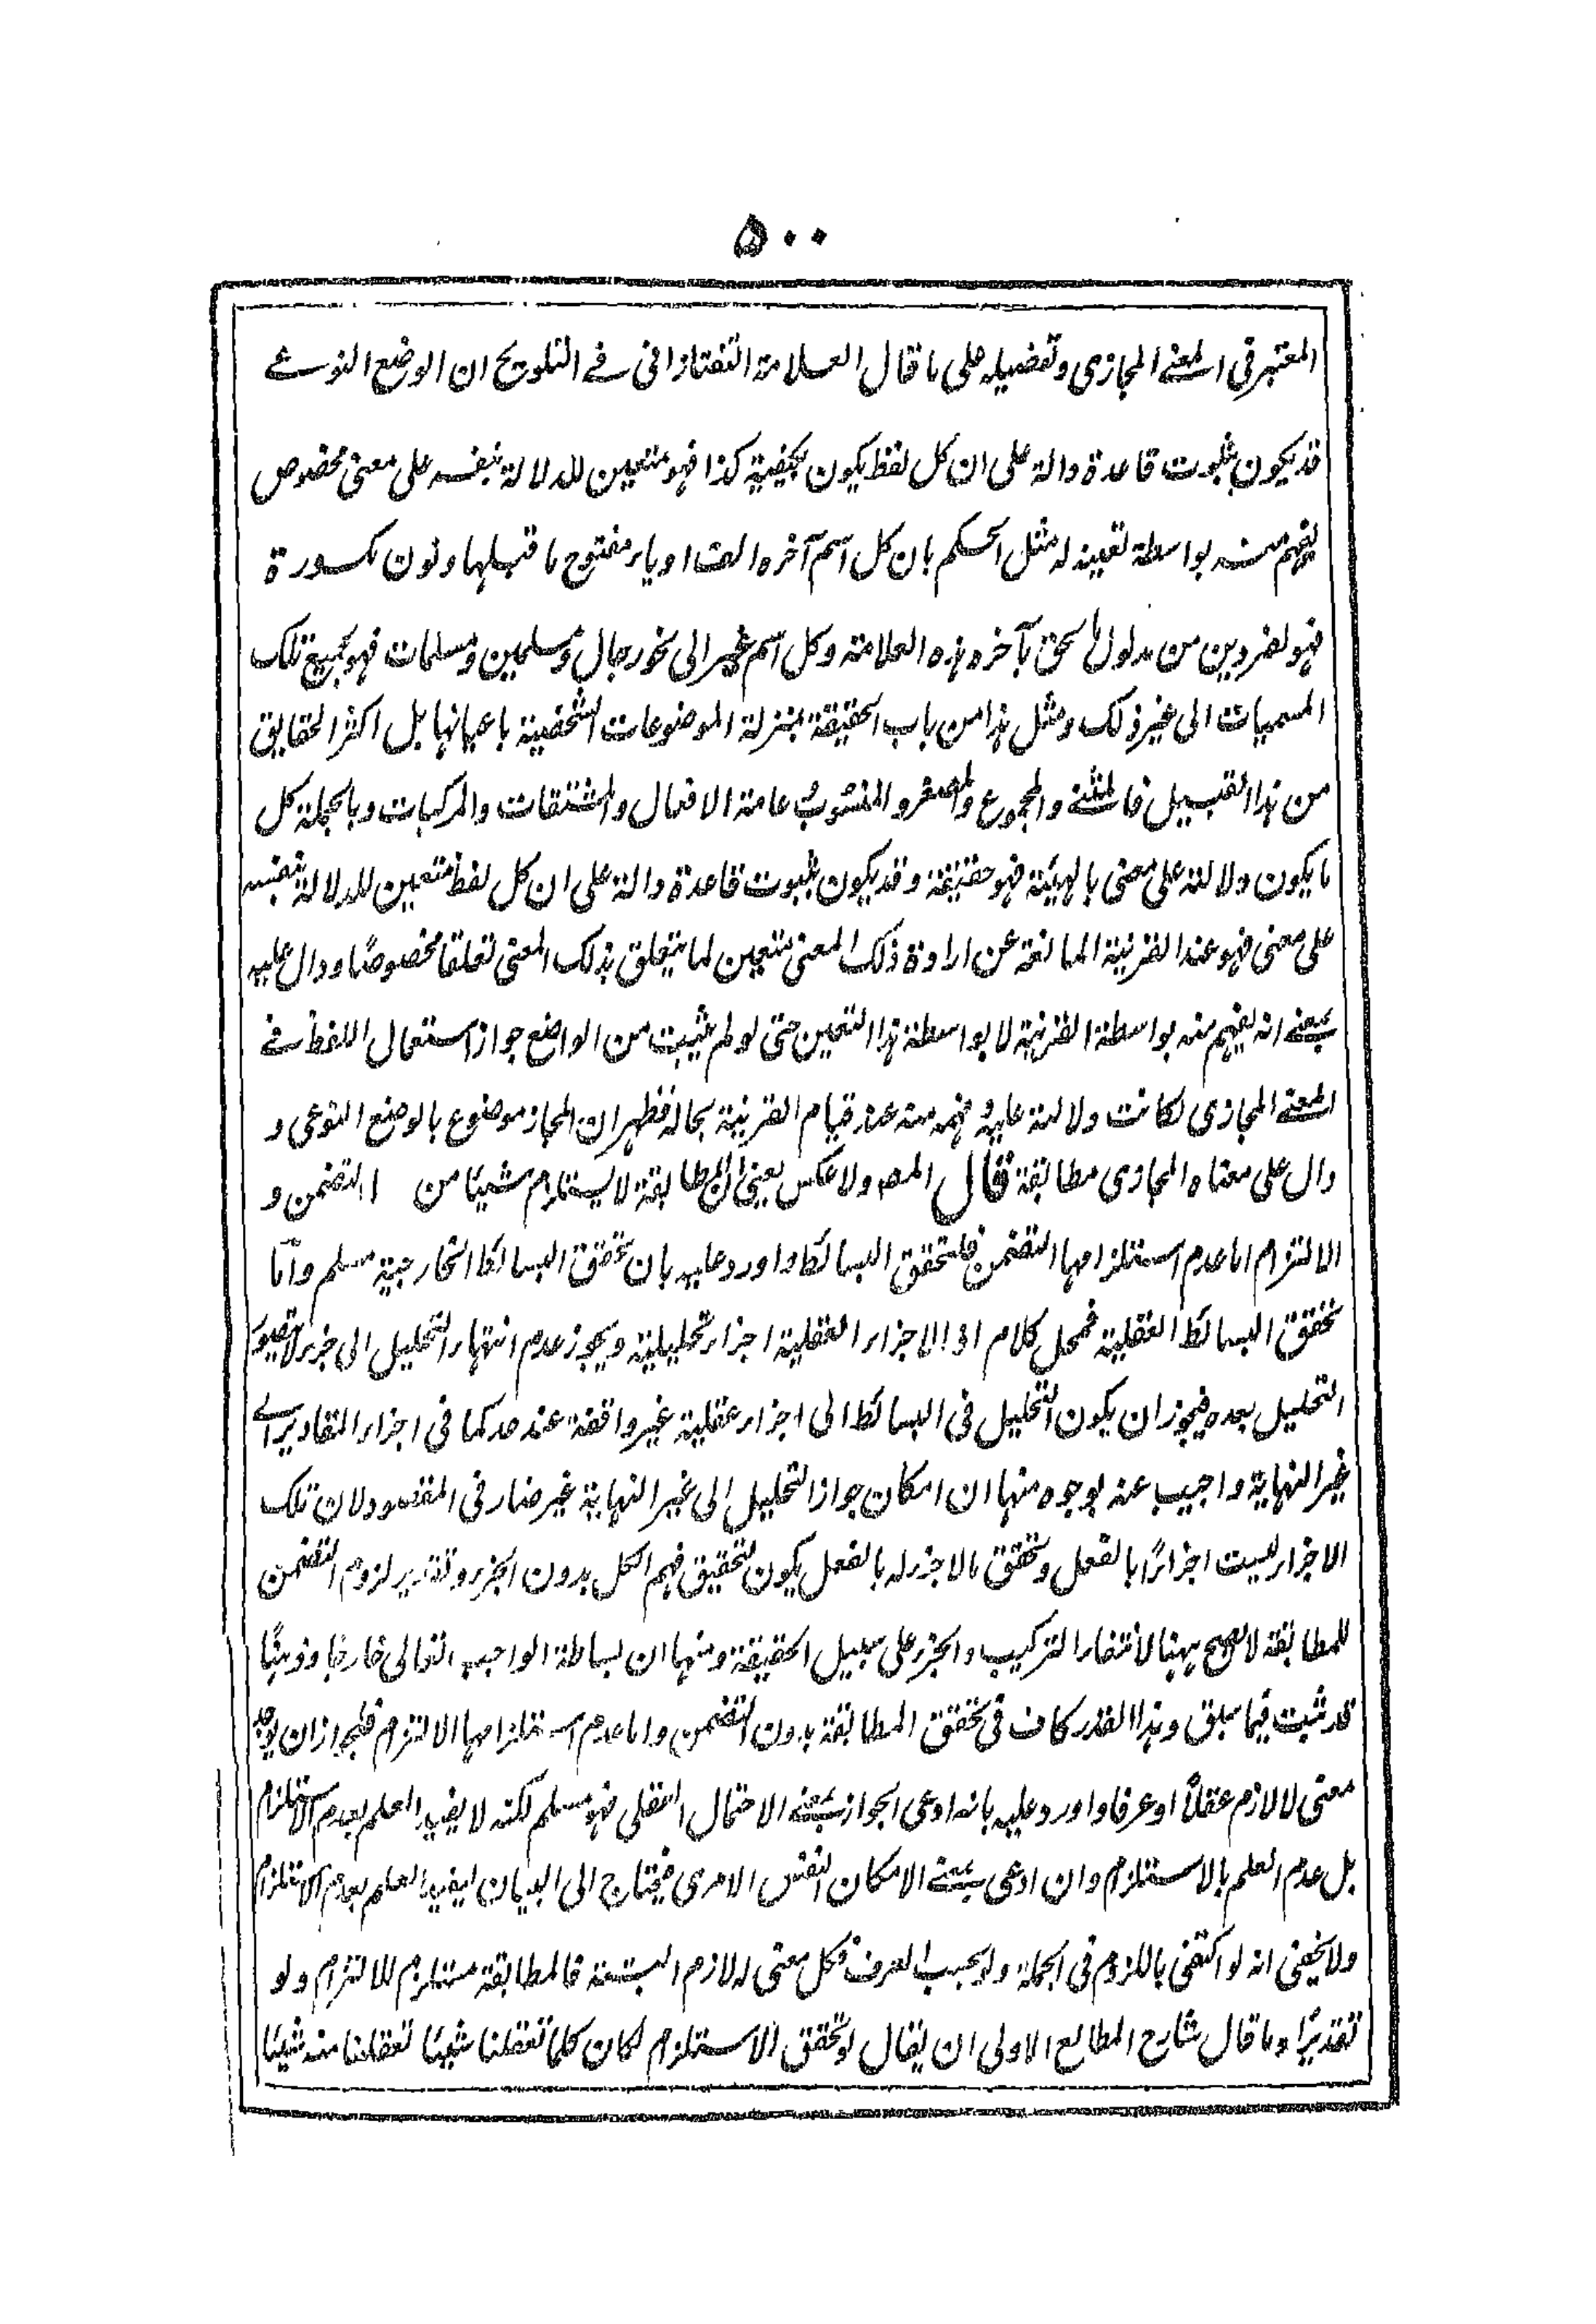 ۵۰۰
المعتبر في المعنى المجازى وتفصيله على ما قال العلامة التفتازانى فى التلويح ان الوضع النوعى
قد يكون بثبوت قاعدة دالة على ان كل لفظ يكون بكيفية كذا فهو متعين للدلالة بنفسه على معنى مخصوص
يفهم منه بواسطة تعينه له مثل الحكم بان كل اسم آخره الف او ياء مفتوح ما قبلها ونون مكسورة
فهو لفردين من مدلول ما لحق بآخره هذه العلامة وكل اسم غير الى نحو رجال ومسلمين ومسلمات فهو بجميع تلك
المسميات الى غير ذلك ومثل هذا من باب الحقيقة بمنزلة الموضوعات الشخصية باعيانها بل اكثر الحقايق
من هذا القبيل فالمثنى والمجموع والمصغر والمنسوب عامة الافعال والمشتقات والمركبات وبالجملة كل
ما يكون دلالته على معنى بالهيئة فهو حقيقة وقد يكون بثبوت قاعدة دالة على ان كل لفظ متعين للدلالة بنفسه
على معنى فهو عند القرينة المانعة عن ارادة ذلك المعنى متعين لما يتعلق بذلك المعنى تعلقا مخصوصًا ودال عليه
بمعنى انه يفهم منه بواسطة القرينة لا بواسطة هذا التعين حتى لو لم يثبت من الواضع جواز استعمال اللفظ فى
المعنى المجازى لكانت دلالته عليه وفهمه منه عند قيام القرينة بحاله فظهر ان المجاز موضوع بالوضع النوعى و
دال على معناه المجازى مطابقة قال المصـ ولا عكس يعنى ان المطابقة لا يستلزم شيئا من التضمن و
الالتزام اما عدم استلزامها التضمن فلتحقق البسائط واورد عليه بان تحقق البسائط الخارجية مسلم واما
تحقق البسائط العقلية فمحل كلام اذ الاجزاء العقلية اجزاء تحليلية ويجوز عدم انتهاء التحليل الى جزء لا يتصور
التحليل بعده فيجوز ان يكون التحليل فى البسائط الى اجزاء عقلية غير واقفة عند حد كما فى اجزاء المقادير الى
غير النهاية واجيب عنه بوجوه منها ان امكان جواز التحليل الى غير النهاية غير ضار فى المقصود لان تلك
الاجزاء ليست اجزاءً بالفعل وتحقق مالا جزء له بالفعل يكون لتحقيق فهم الكل بدون الجزء وتقدير لزوم التضمن
للمطابقة لا يصح ههنا لانتفاء التركيب والجزء على سبيل الحقيقة ومنها ان بساطة الواجب تعالى خارجًا وذهنًا
قد ثبت فيما سبق وهذا القدر كاف فى تحقق المطابقة بدون التضمن واما عدم استلزامها الالتزام فلجواز ان يوجد
معنى لا لازم عقلًا او عرفا واورد عليه بانه ادعى الجواز بمعنى الاحتمال العقلى فهو مسلم لكنه لا يفيد العلم بعدم الاستلزام
بل عدم العلم بالاستلزام وان ادعى بمعنى الامكان النفس الامرى فيحتاج الى البيان ليفيد العلم بعدم الاستلزام
ولا يخفى انه لو اكتفى باللزوم فى الجملة ولو بحسب العرف فكل معنى له لازم البتة فالمطابقة مستلزم للالتزام ولو
تقديرًا وما قال شارح المطالع الاولى ان يقال لو تحقق الاستلزام لكان كلما تعقلنا شيئًا تعقلنا منه شيئًا